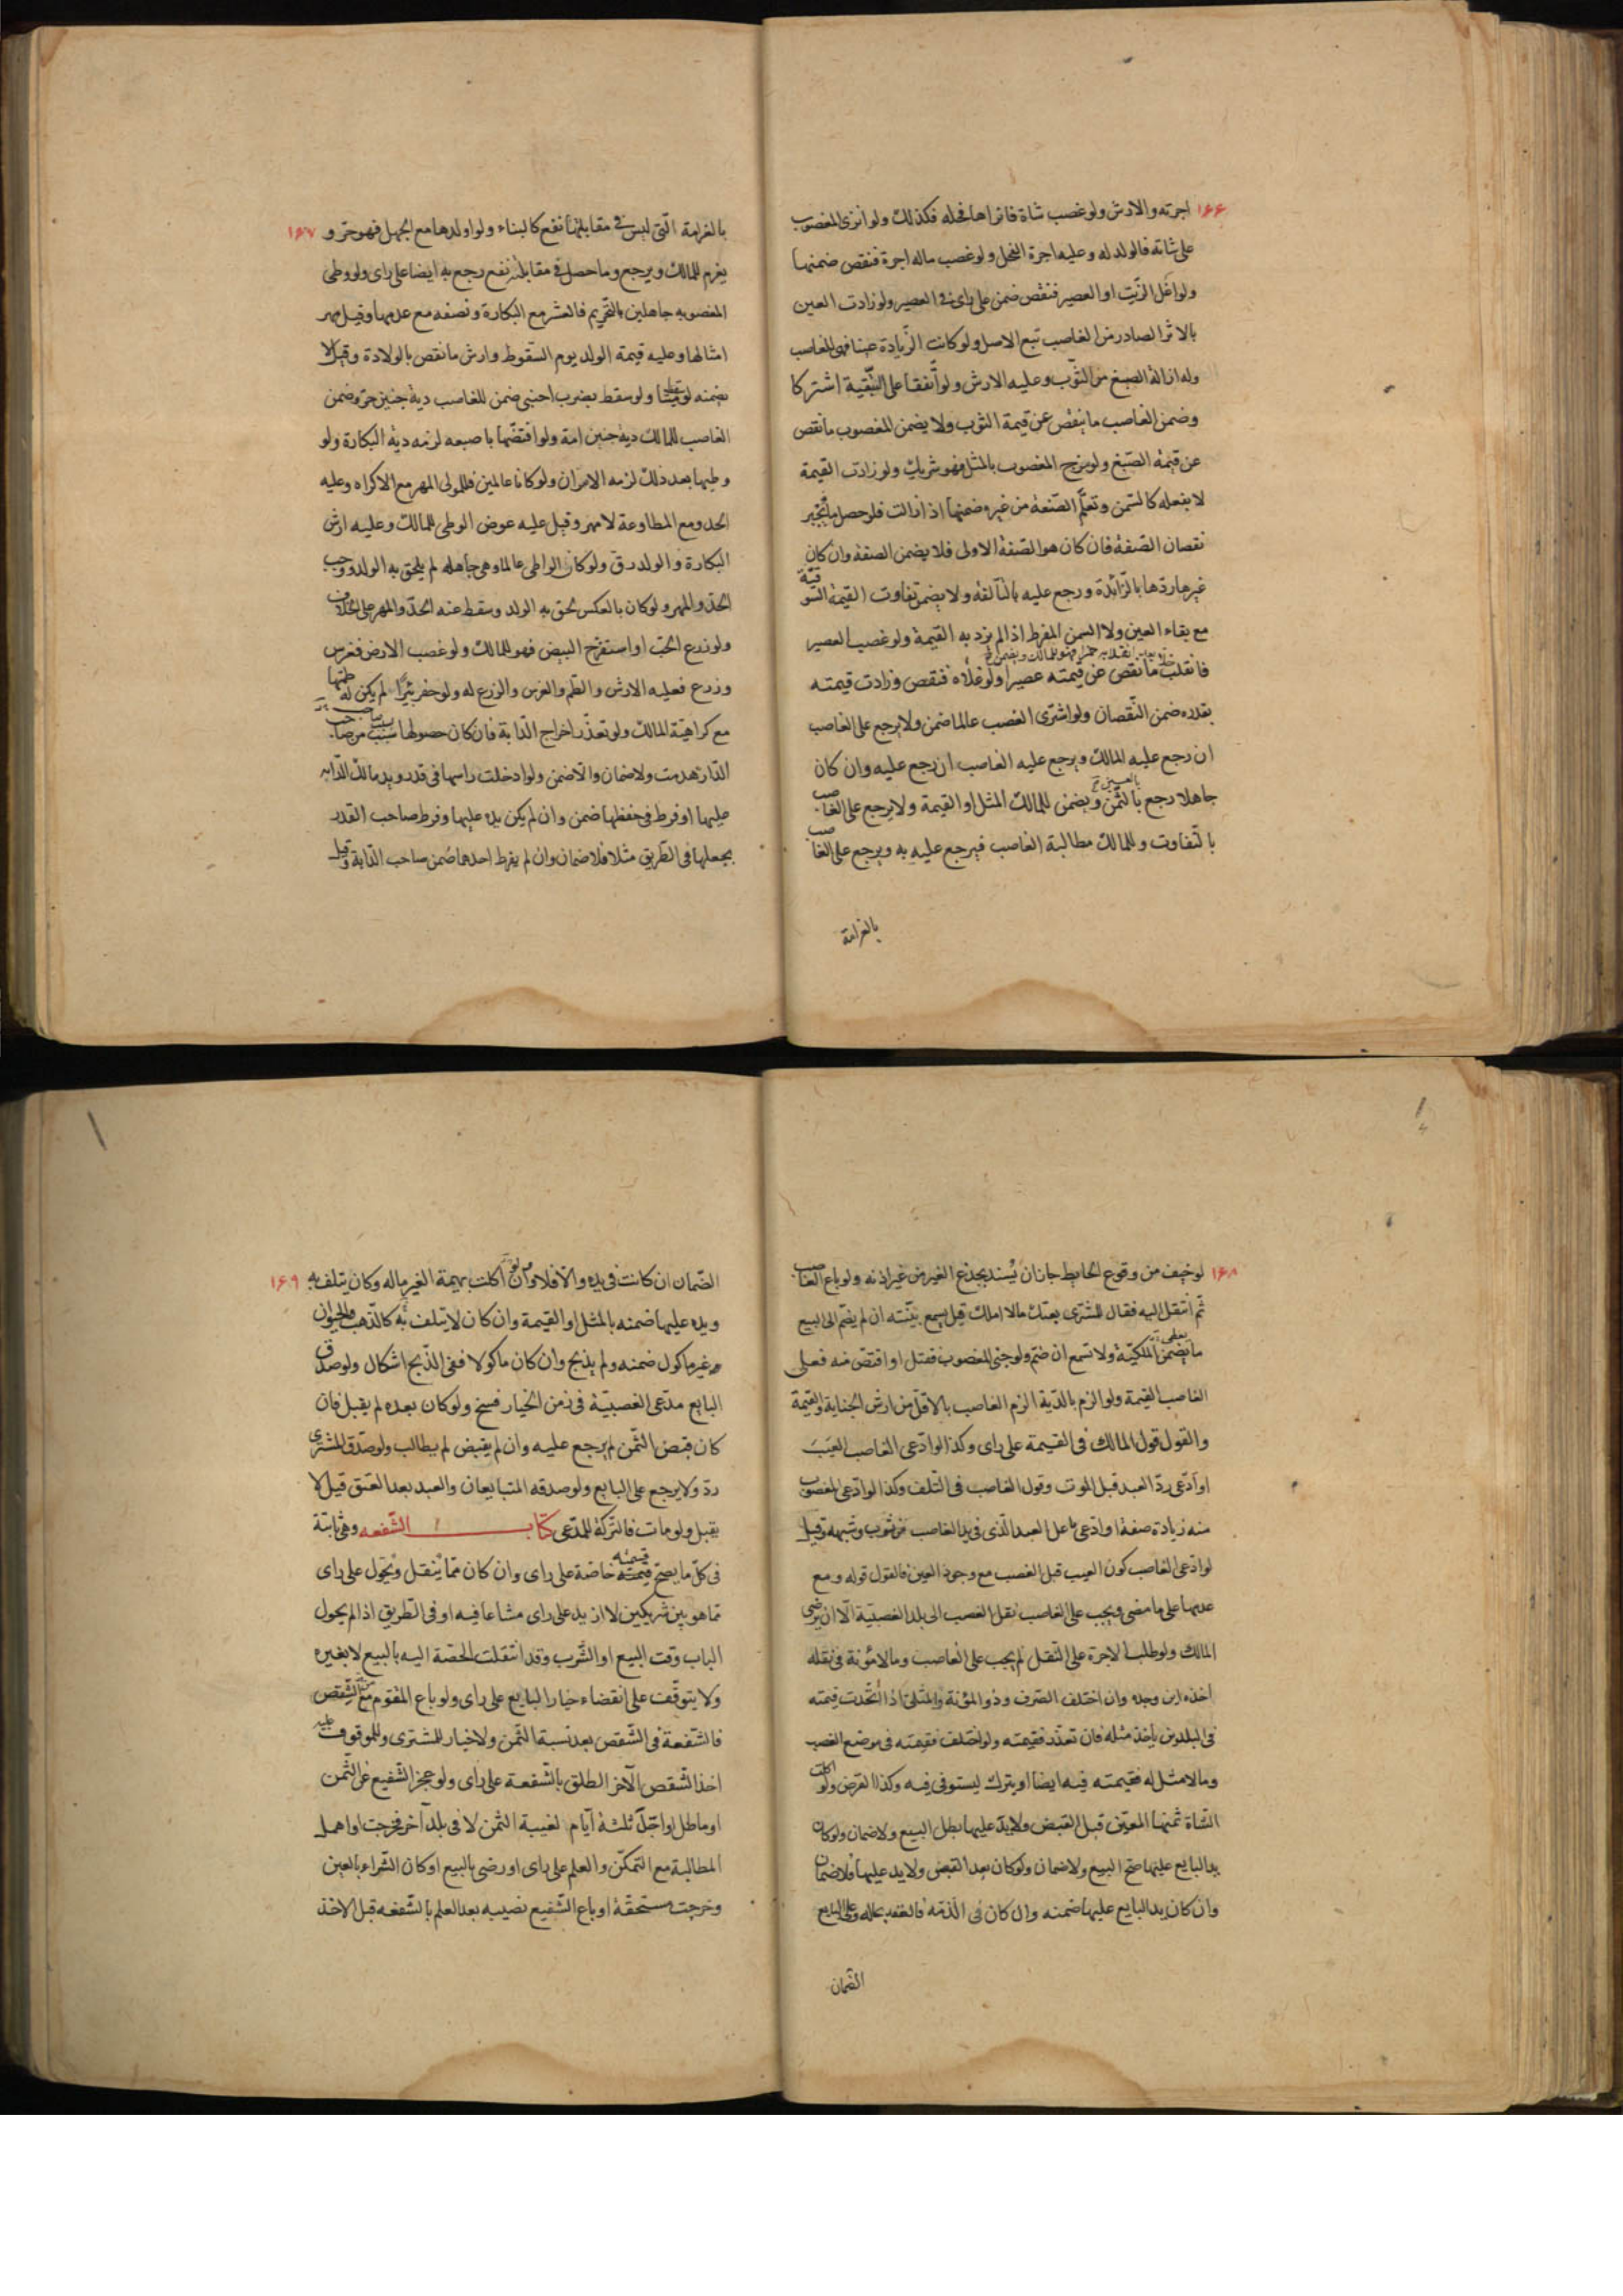 ۱۶۶
اجرته والارش ولو غصب شاة فانزاها فحله فكذلك ولو انزى المغصوب
على شاته فالولد له وعليه اجرة الفحل ولو غصب ماله اجرة فنقص ضمنهما
ولو اغلى الزيت او العصير فنقص ضمن على راى فى العصير ولو زادت العين
بالاثر الصادر من الغاصب تبع الاصل ولو كانت الزيادة عينا فهى للغاصب
وله ازالة الصبغ من الثوب وعليه الارش ولو اتفقا على التبقية اشتركا
وضمن الغاصب ما ينقص عن قيمة الثوب ولا يضمن المغصوب ما نقص
عن قيمة الصبغ ولو مزج المغصوب بالمثل فهو شريك ولو زادت القيمة
لا بفعله كالسمن وتعلم الصنعة من غيره ضمنها اذا زالت فلو حصل ما ينجبر
نقصان الصفة فان كان هو الصفة الاولى فلا يضمن الصفة وان كان
غيرها ردها بالزائدة ورجع عليه بالتالفة ولا يضمن تفاوت القيمة السوقية
مع بقاء العين ولا السمن المفرط اذا لم يزد به القيمة ولو غصب العصير
فانقلب ما نقص عن قيمته عصيرا ولو غلاه فنقص وزادت قيمته
بقدره ضمن النقصان ولو اشترى الغصب عالما ضمن ولا يرجع على الغاصب
ان رجع عليه المالك ويرجع عليه الغاصب ان رجع عليه وان كان
جاهلا رجع بالثمن ويضمن للمالك المثل او القيمة ولا يرجع على الغاصب
بالتفاوت وللمالك مطالبة الغاصب فيرجع عليه به ويرجع على الغاصب
بالغرامة
۱۶۷
بالغرامة التى ليس فى مقابلتها نفع كالبناء ولو اولدها مع الجهل فهو حر و
يغرم للمالك ويرجع وما حصل فى مقابلته نفع رجع به ايضا على راى ولو وطى
المغصوبه جاهلين بالتحريم فالعشر مع البكارة ونصفه مع عدمها وقيل مهر
امثالها وعليه قيمة الولد يوم السقوط وارش ما نقص بالولادة وقيل لا
يضمنه لو سقط ميتا ولو سقط بضرب اجنبى ضمن للغاصب دية جنين حر وضمن
الغاصب للمالك دية جنين امة ولو افتضها باصبعه لزمه دية البكارة ولو
وطيها بعد ذلك لزمه الامران ولو كانا عالمين فللمولى المهر مع الاكراه وعليه
الحد ومع المطاوعة لا مهر وقيل عليه عوض الوطى للمالك وعليه ارش
البكارة والولد رق ولو كان الواطى عالما وهى جاهله لم يلحق به الولد ووجب
الحد والمهر ولو كان بالعكس لحق به الولد وسقط عنه الحد والمهر على الخلاف
ولو زرع الحب او استفرخ البيض فهو للمالك ولو غصب الارض فغرس
وزرع فعليه الارش والطم والغرس والزرع له ولو حفر بئرا لم يكن له طمها
مع كراهية المالك ولو تعذر اخراج الدابة فان كان حصولها بسبب من صاحب
الدار هدمت ولا ضمان والا ضمن ولو ادخلت راسها فى قدر ويد مالك الدابه
عليها او فرط فى حفظها ضمن وان لم يكن يده عليها وفرط صاحب القدر
بجعلها فى الطريق مثلا فلا ضمان وان لم يفرط احدهما ضمن صاحب الدابة وقيل
۱۶۸
لو خيف من وقوع الحايط جاز ان يسند بجذع الغير من غير اذنه ولو باع الغاصب
ثم انتقل اليه فقال للمشترى بعتك ما لا املك قيل يسمع بينته ان لم يضم الى البيع
ما يضمن الملكية ولا تسمع ان ضم ولو جنى المغصوب فقتل او اقتص منه فعلى
الغاصب القيمة ولو الزم بالدية الزم الغاصب بالاقل من ارش الجناية والقيمة
والقول قول المالك فى القيمة على راى وكذا لو ادعى الغاصب العيب
او ادعى رد العبد قبل الموت وقول الغاصب فى التلف وكذا لو ادعى المغصوب
منه زيادة صفة او ادعى ما على العبد الذى فى يد الغاصب من ثوب وشبهه وقيل
لو ادعى الغاصب كون العيب قبل الغصب مع وجود العين فالقول قوله ومع
عدمها على ما مضى ويجب على الغاصب نقل الغصب الى بلد الغصبية الا ان يرضى
المالك ولو طلب الاجرة على النقل لم يجب على الغاصب وما لا مؤنة فى نقله
اخذه اين وجده وان اختلف الصرف وذو المؤنة والمثلى اذا اتحدت قيمته
فى البلدين ياخذ مثله فان تعذر فقيمته ولو اختلف فقيمته فى موضع الغصب
وما لا مثل له فقيمته فيه ايضا او يترك ليستوفى فيه وكذا القرض ولو اكلت
الشاة ثمنها المعين قبل القبض ولا يد عليها بطل البيع ولا ضمان ولو كان
يد البايع عليها صح البيع ولا ضمان ولو كان بعد القبض ولا يد عليها فلا ضمان
وان كان يد البايع عليها ضمنه وان كان فى الذمة فالعقد بحاله وعلى البايع
الضمان
۱۶۹
الضمان ان كانت فى يده والا فلا وان اكلت بهيمة الغير ماله وكان يتلف به
ويده عليها ضمنه بالمثل او القيمة وان كان لا يتلف به كالذهب والحيوان
غير ماكول ضمنه ولم يذبح وان كان ماكولا ففى الذبح اشكال ولو صدق
البايع مدعى الغصبية فى زمن الخيار فسخ ولو كان بعده لم يقبل فان
كان قبض الثمن لم يرجع عليه وان لم يقبض لم يطالب ولو صدق المشترى
رد ولا يرجع على البايع ولو صدقه المتبايعان والعبد بعد العتق قيل لا
يقبل ولو مات فالتركة للمدعى كتاب الشفعه وهى ثابتة
فى كل ما يصح قسمته خاصة على راى وان كان مما ينقل ويحول على راى
مما هو بين شريكين لا ازيد على راى مشاعا فيه او فى الطريق اذا لم يحول
الباب وقت البيع او الشرب وقد انتقلت الحصة اليه بالبيع لا بغيره
ولا يتوقف على انقضاء خيار البايع على راى ولو باع المقوم مع الشقص
فالشفعة فى الشقص بعد نسبة الثمن ولا خيار للمشترى وللموقوف عليه
اخذ الشقص الآخر الطلق بالشفعة على راى ولو عجز الشفيع عن الثمن
او ماطل او اجل ثلثة ايام لغيبة الثمن لا فى بلد آخر فخرجت او اهمل
المطالبة مع التمكن والعلم على راى او رضى بالبيع او كان الشراء بالعين
وخرجت مستحقة او باع الشفيع نصيبه بعد العلم بالشفعه قبل الاخذ